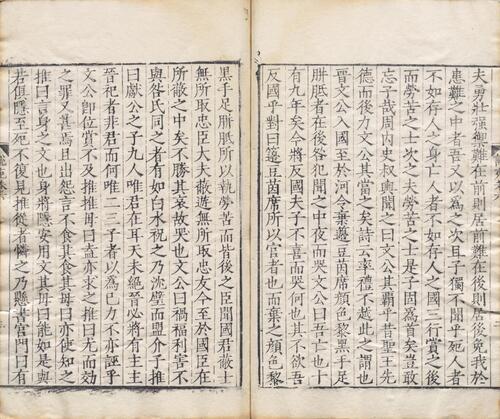 夫勇壯强禦難在前則居前難在後則居後免我於
患難之中者吾又以為之次且子獨不聞乎死人者
不如存人之身亡人者不如存人之國三行賞之後
而勞苦之士次之夫勞苦之士是子固為首矣豈敢
忘子哉周內史叔輿聞之曰文公其霸乎昔聖王先
德而後力文公其當之矣詩云率禮不越此之謂也
晉文公入國至於河令棄籩豆茵席顏色黎黑手足
胼胝者在後咎犯聞之中夜而哭文公曰吾亡也十
有九年矣今將反國夫子不喜而哭何也其不欲吾
反國乎對曰籩豆茵席所以官者也而棄之顏色黎
黑手足胼胝所以執勞苦而皆後之臣聞國君蔽士
無所取忠臣大夫蔽遊無所取忠友今至於國臣在
所蔽之中矣不勝其哀故哭也文公曰禍福利害不
與咎氏同之者有如白水祝之乃沈璧而盟介子推
曰獻公之子九人唯君在耳天未絕晉必將有主主
晉祀者非君而何唯二三子者以為己力不亦誣乎
文公即位賞不及推推母曰盍亦求之推曰尤而效
之罪又甚焉且出怨言不食其食其母曰亦使知之
推曰言身之文也身將隱安用文其母曰能如是與
若俱隱至死不復見推從者憐之乃懸書宮門曰有